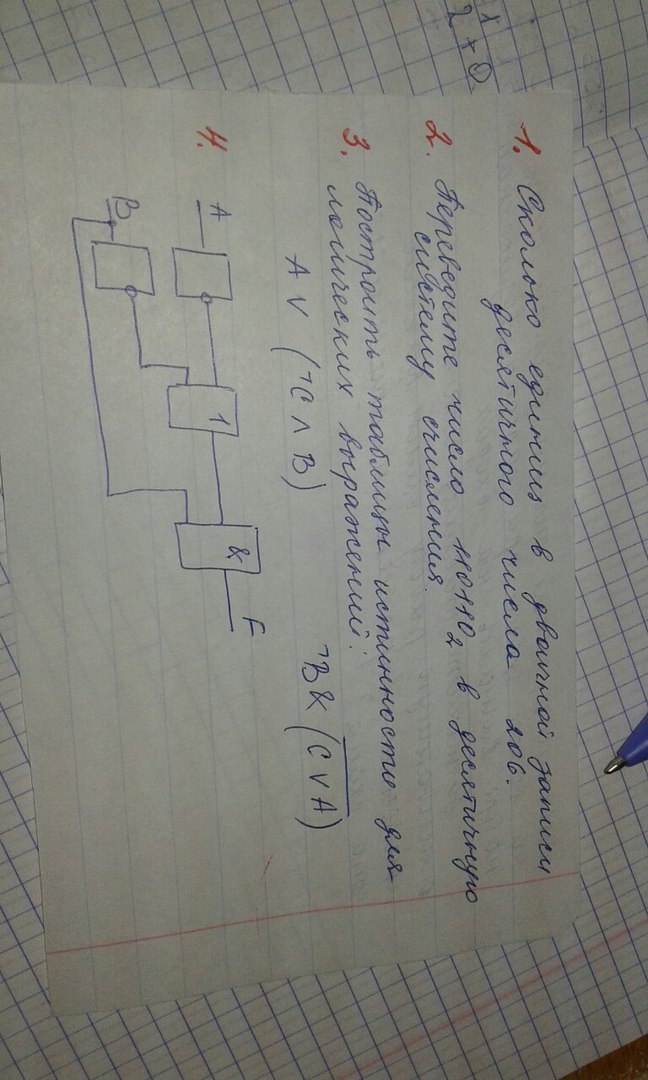 x
2 + 2
1. Сколько единиц в двоичной записи
десятичного числа 206.
2. Переведите число 110110₂ в десятичную
систему счисления.
3. Построить таблицы истинности для
логических выражений:
A V (¬C Λ B) ¬B & (\overline{C V A})
4. A 1 & F
B